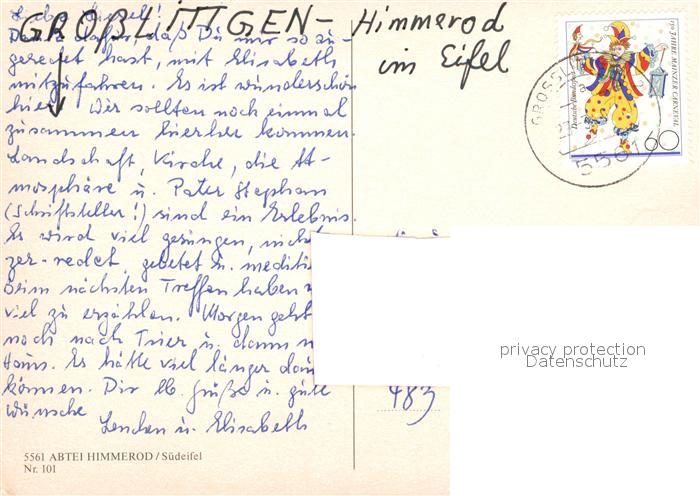 GROßLITTGEN - Himmerod
im Eifel
Liebe Giesel!
Danke dafür, daß Du mir so zu-
geredet hast, mit Elisabeth
mitzufahren. Es ist wunderschön
hier. Wir sollten noch einmal
zusammen hierher kommen.
Landschaft, Kirche, die At-
mosphäre u. Pater Stephan
(Schriftsteller!) sind ein Erlebnis.
Es wird viel gesungen, nicht
zer-redet, gebetet u. medit
beim nächsten Treffen haben
viel zu erzählen. Morgen geht
noch nach Trier u. dann n
Haus. Es hätte viel länger
können. Dir lb. Grüße u. gute
Wünsche
Lenchen u. Elisabeth
5561 ABTEI HIMMEROD / Südeifel
Nr. 101
Deutsche Bundespost
150 JAHRE MAINZER CARNEVAL
60
GROSSLI
5561
483
privacy protection
Datenschutz